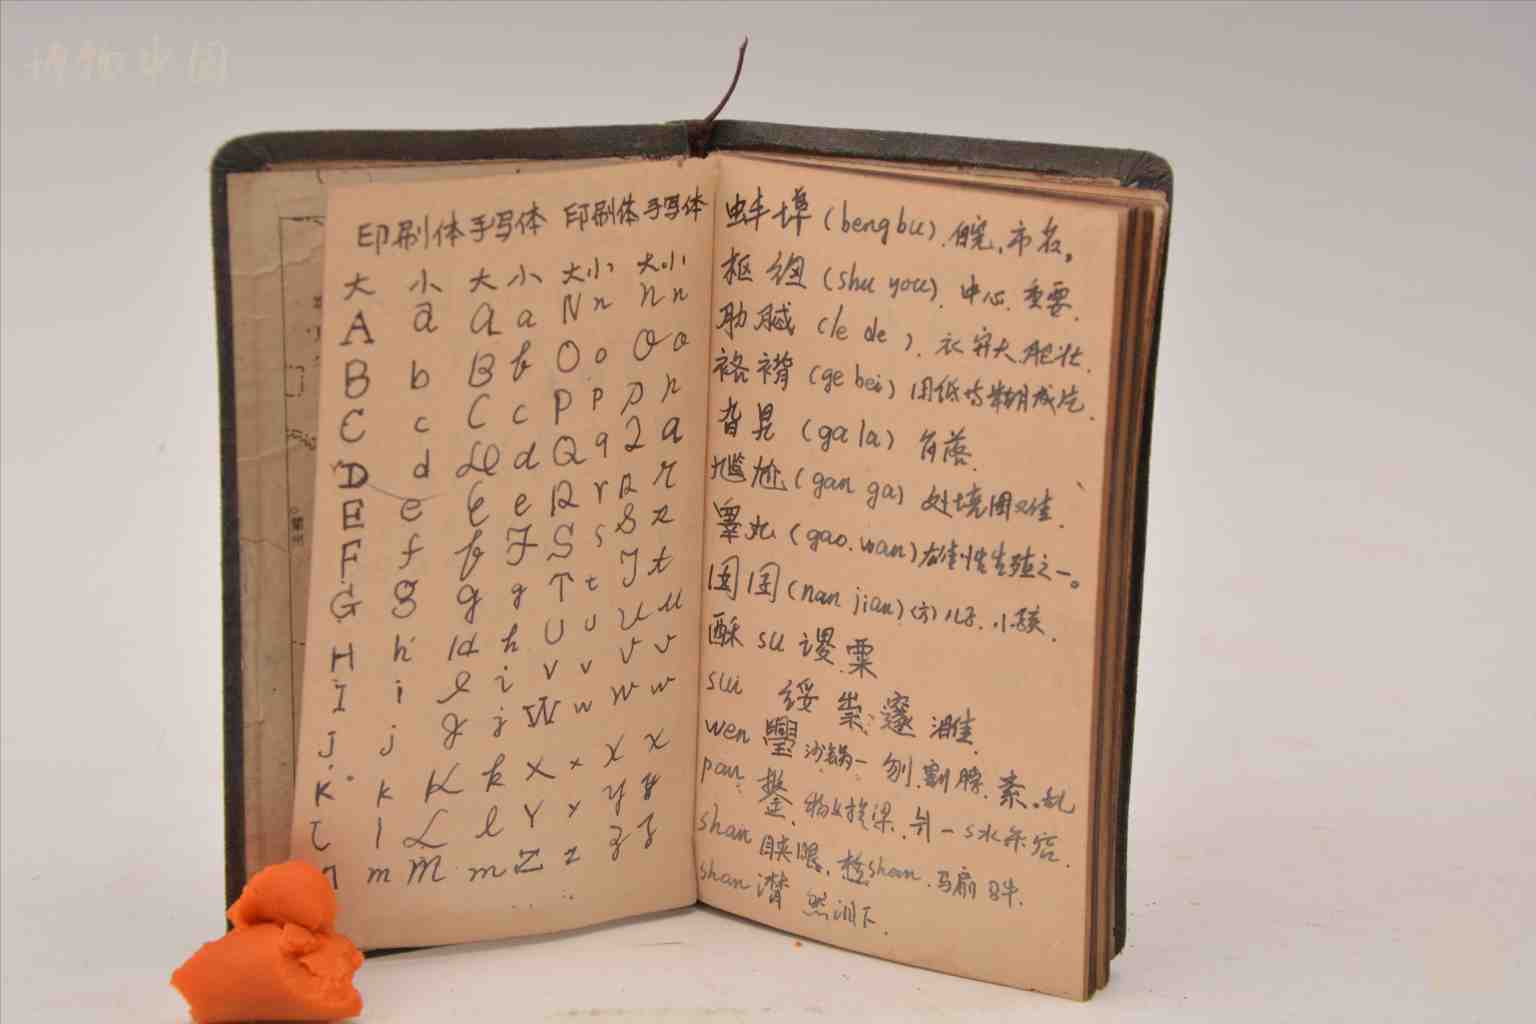 博物中国
印刷体 手写体 印刷体 手写体
大 小 大 小 大 小 大 小
A a A a N n N n
B b B b O o O o
C c C c P p P p
D d D d Q q Q q
E e E e R r R r
F f f F S s S s
G g g g T t T t
H h H h U u U u
I i I i V v V v
J j J j W w W w
K k K k X x X x
L l L l Y y Y y
m M m Z z Z z
蚌埠 (bengbu). 皖. 市名。
枢纽 (shu you). 中心. 重要.
肋脦 (le de). 衣穿大. 肥壮.
袼褙 (ge bei) 用纸
旮旯 (ga la) 角落.
尴尬 (gan ga) 处境困难.
睾丸 (gao.wan) 雄性生殖之一。
囡囝 (nan jian) (方) 儿子. 小孩.
酥 su 谡. 粟
sui 绥 祟. 邃 濉.
wen 璺 沙锅一 刎. 紊。乱
pan
shan 睒眼. shan. 马扇
shan 潸 然泪下.